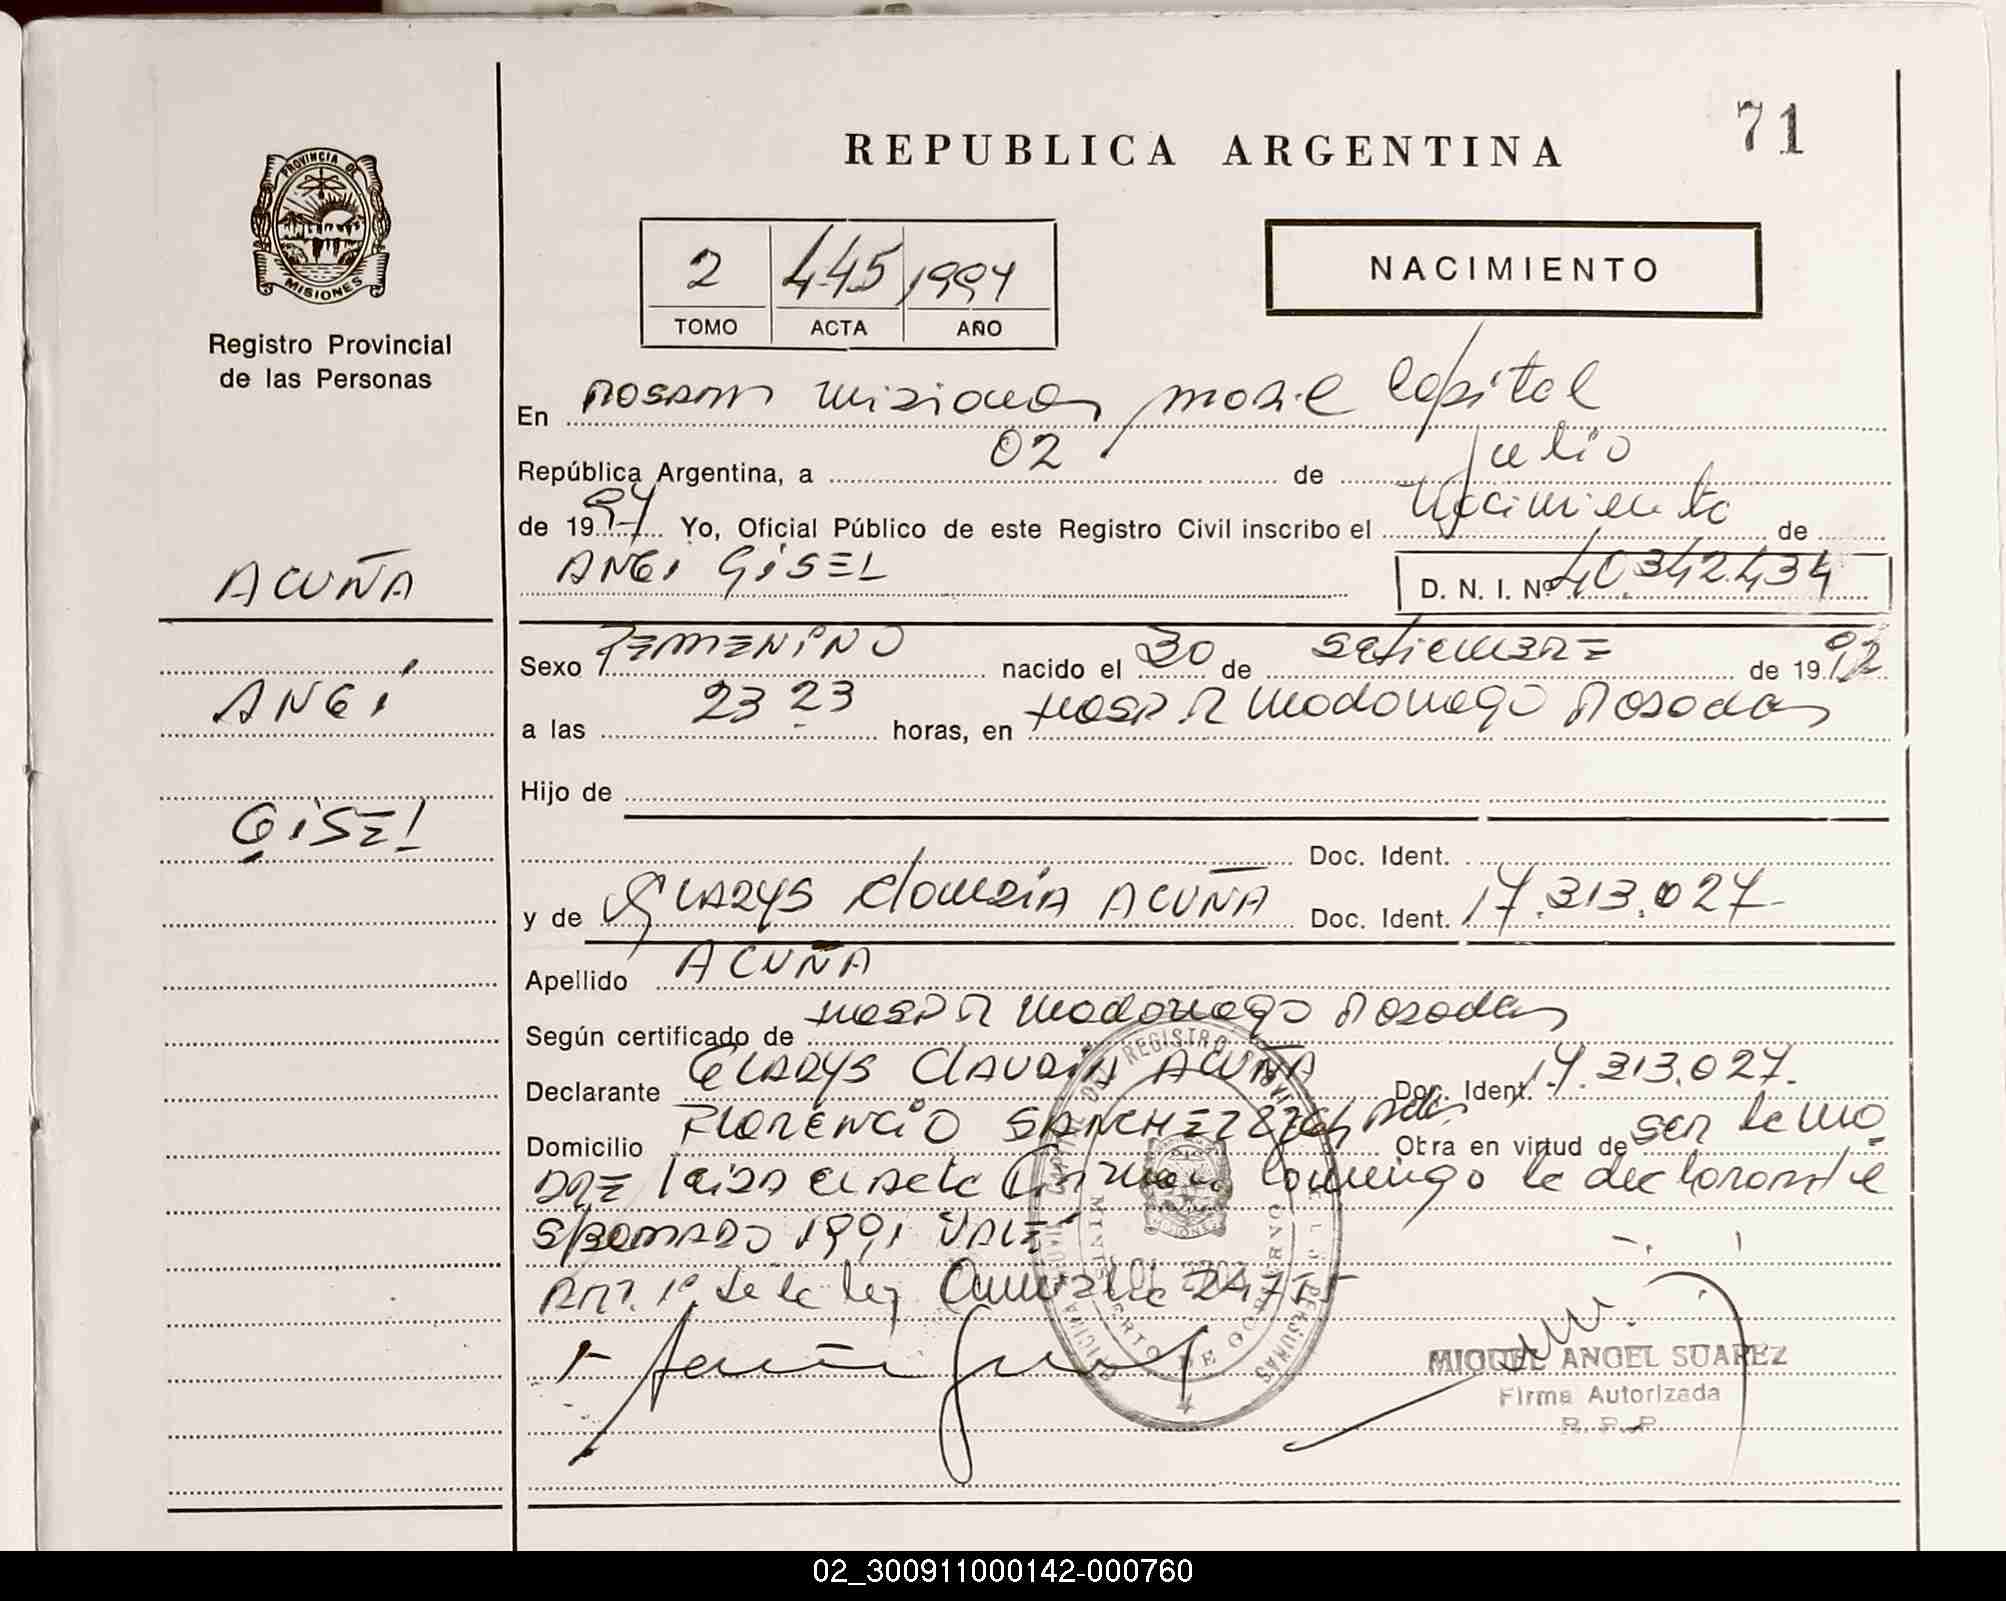 71
REPUBLICA ARGENTINA
PROVINCIA DE
MISIONES
Registro Provincial
de las Personas
2 445 1997
TOMO ACTA AÑO
NACIMIENTO
En Misiones Capital
República Argentina, a 02 de Julio
de 1997 Yo, Oficial Público de este Registro Civil inscribo el Nacimiento de
ANGI GISEL
D. N. I. Nº 40.342.434
ACUÑA
ANGI
GISEL
Sexo FEMENINO nacido el 30 de SETIEMBRE de 19
a las 23 23 horas, en HOSP R Madariaga Posadas
Hijo de
Doc. Ident.
y de GLADYS Claudia ACUÑA Doc. Ident. 17.313.027
Apellido ACUÑA
Según certificado de HOSP R Madariaga Posadas
Declarante GLADYS CLAUDIA ACUÑA Doc. Ident. 17.313.027.
Domicilio FLORENCIO SANCHEZ Otra en virtud de ser la ma
DRE leida el acta firman conmigo la declarante
1991 VALE
ART. 1º de la ley 24755
MIGUEL ANGEL SUAREZ
Firma Autorizada
R. P. P.
02_300911000142-000760